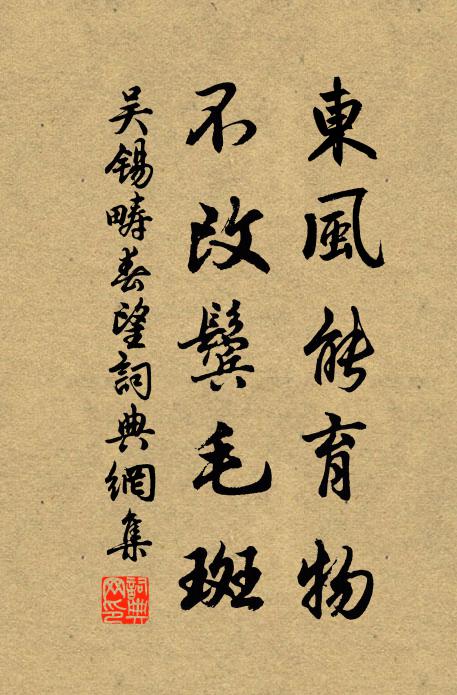 東風能育物
不改鬢毛斑
吴錫疇春望詞典網集
詞典
网印